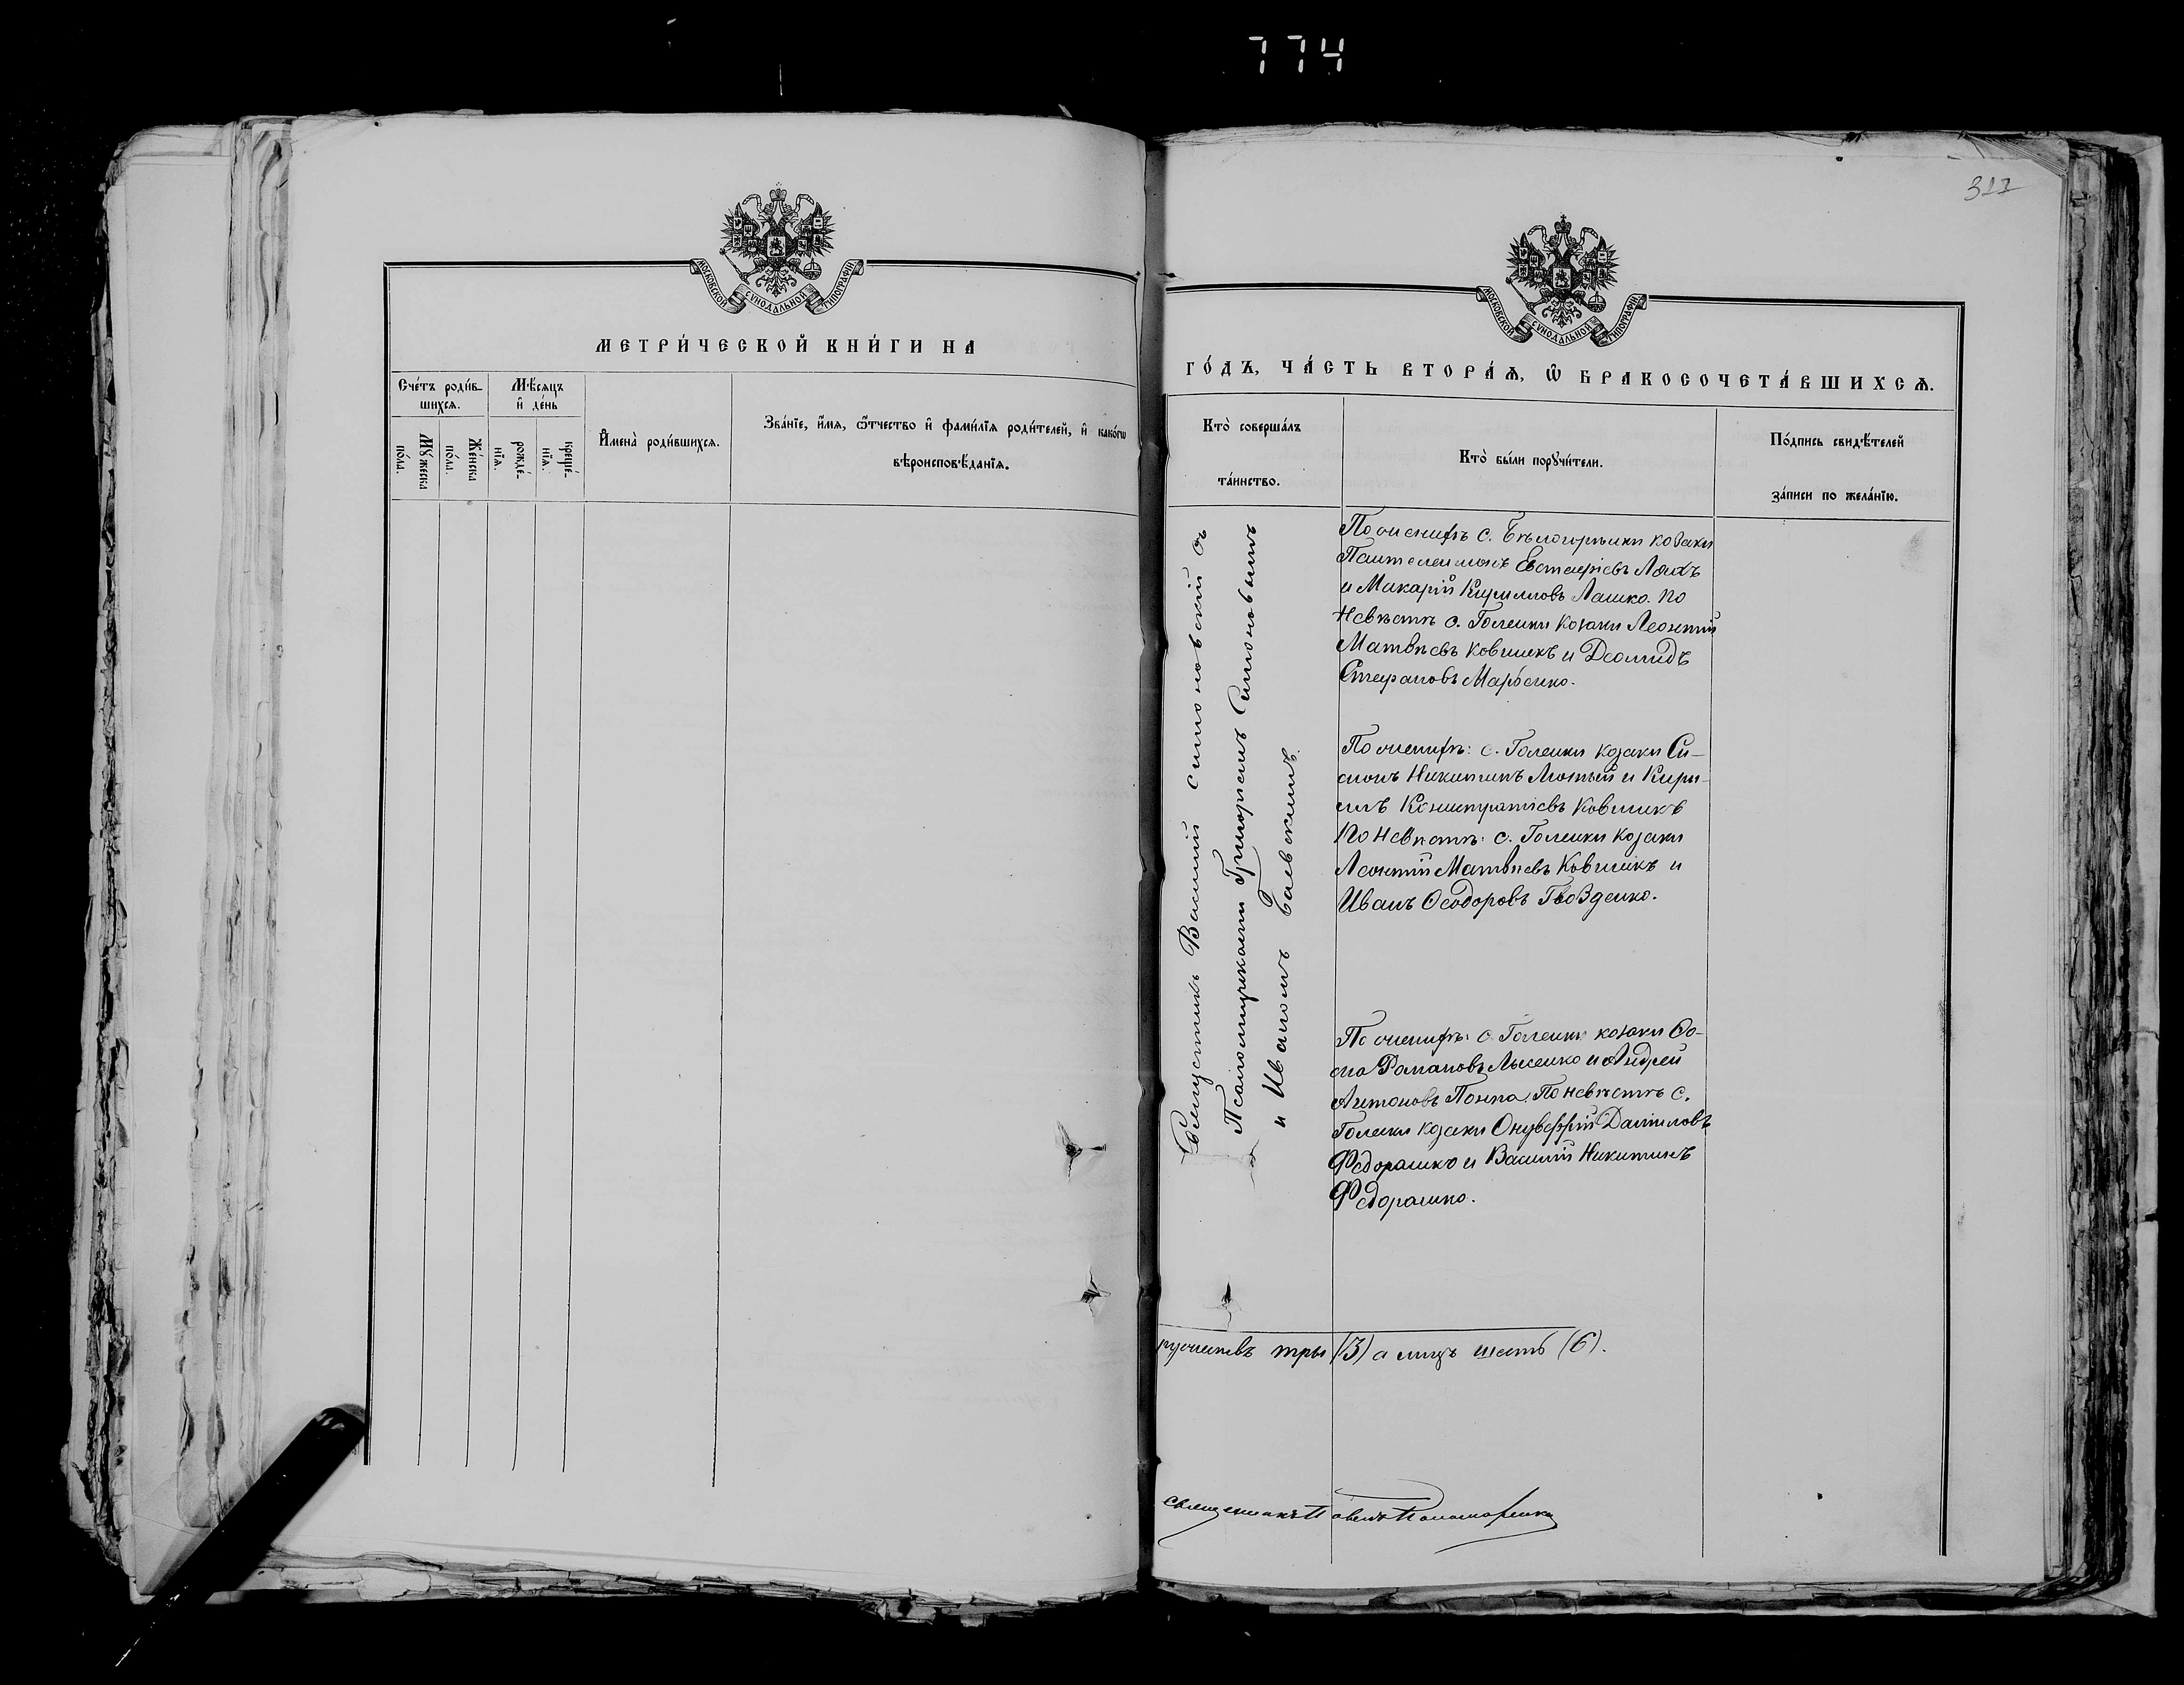 774
МОСКОВСКОЙ СѴНОДАЛЬНОЙ ТИПОГРАФІИ
МЕТРИ́ЧЕСКОЙ КНИ́ГИ НА
Сче́тъ роди́в-
шихсѧ.
Мѣ́сѧцъ
и҆ де́нь
Мꙋжеска
по́ла.
Же́нска
по́ла.
рожде́-
нїѧ.
креще́-
нїѧ.
И҆мена̀ роди́вшихсѧ.
Зва́нїе, и҆́мѧ, ѻ҆́тчество и҆ фами́лїѧ роди́телей, и҆ како́гѡ
вѣроисповѣ́данїѧ.
317
МОСКОВСКОЙ СѴНОДАЛЬНОЙ ТИПОГРАФІИ
ГО́ДЪ, ЧА́СТЬ ВТОРА́Ѧ, Ѡ҆ БРАКОСОЧЕТА́ВШИХСѦ.
Кто̀ соверша́лъ
та́инство.
Кто̀ бы́ли порꙋчи́тели.
По́дпись свидѣ́телей
за́писи по жела́нїю.
Василій Симоновскій съ
Псаломщиками Григоріемъ Симоновымъ
и Иваномъ Баевскимъ.
По женихѣ с. Бѣлогорѣлки козаки
Пантелеимонъ Евстафіевъ Ляхъ
и Макарій Кирилловъ Лашко. по
Невѣстѣ с. Голенки козаки Леонтій
Матвѣевъ Ковшикъ и Деомидъ
Стефановъ Марченко.
По женихѣ: с. Голенки козаки Си-
монъ Никитинъ Лютый и Кири-
лъ Кондратіевъ Ковшикъ
По Невѣстѣ: с. Голенки козаки
Леонтій Матвѣевъ Ковшикъ и
Иванъ Ѳеодоровъ Гвозденко.
По женихѣ: с. Голенки козаки Ѳо-
ма Романовъ Лысенко и Андрей
Антоновъ Понпа. По невѣстѣ с.
Голенки козаки Онуфрій Даниловъ
Федорашко и Василій Никитинъ
Федорашко.
три (3) а лицъ шесть (6).
Священникъ Павелъ Пономаренко